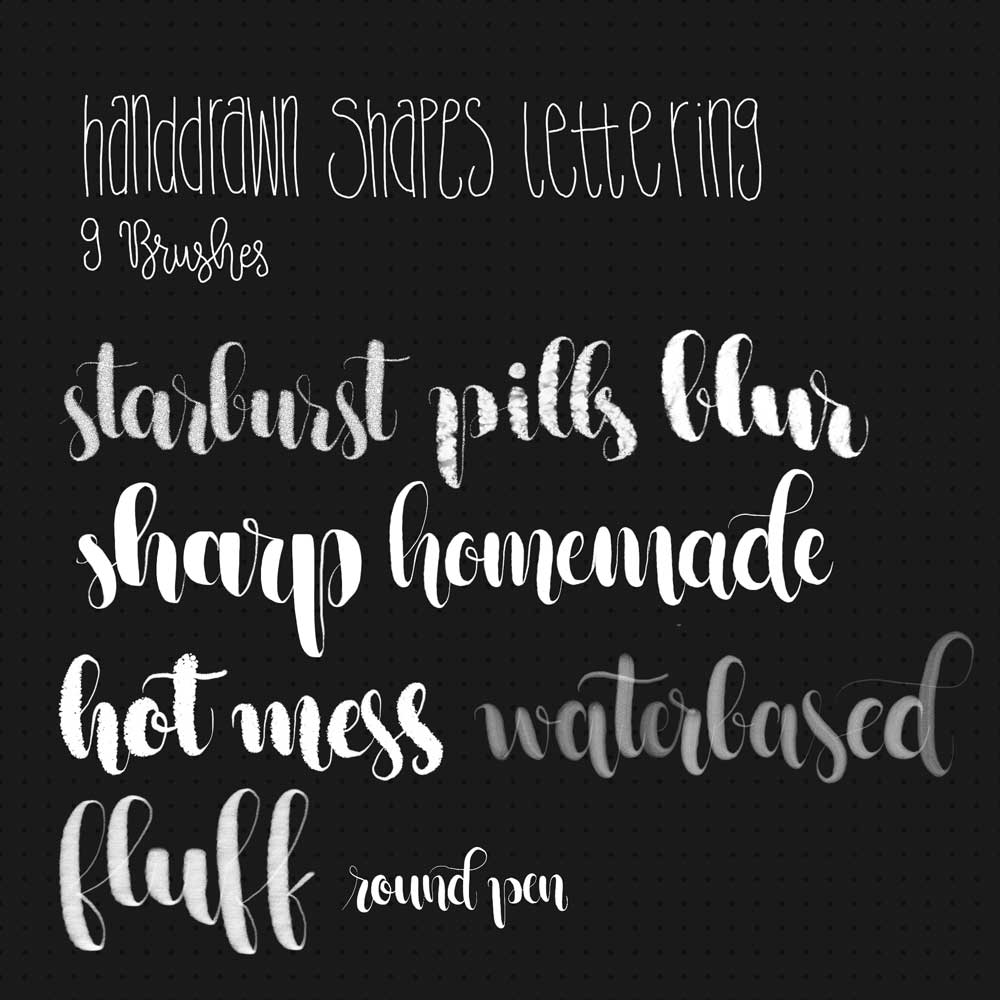 handdrawn shapes lettering
9 Brushes
starburst pills blur
sharp homemade
hot mess waterbased
fluff round pen